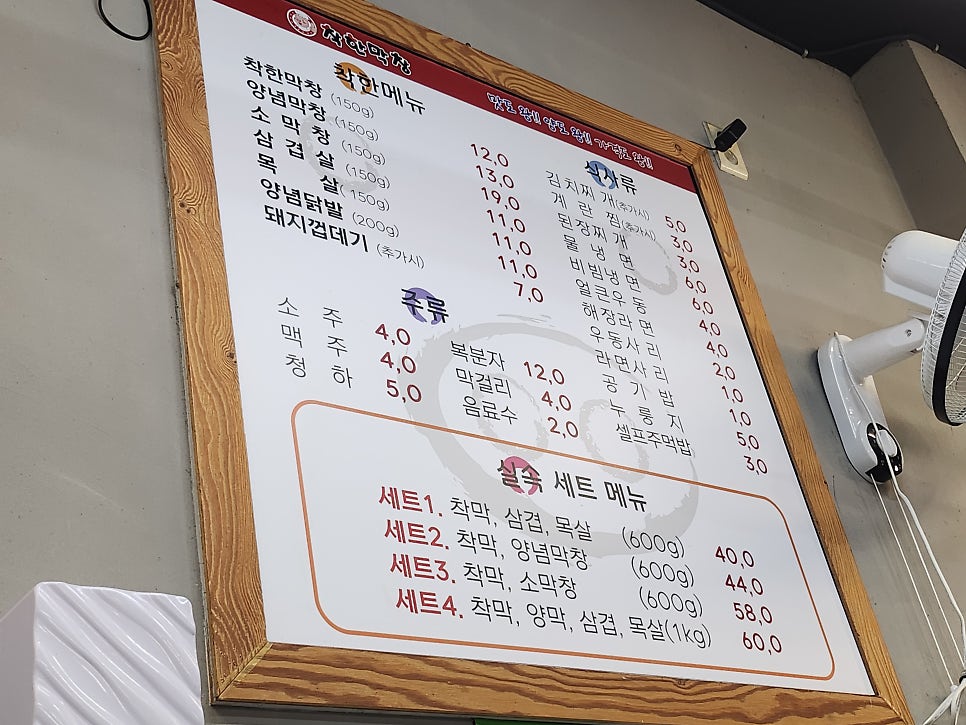 착한막창
맛도 왕!! 양도 왕!! 가격도 왕!!
착한메뉴
착한막창 (150g) 12,0
양념막창 (150g) 13,0
소막창 (150g) 19,0
삼겹살 (150g) 11,0
목살 (150g) 11,0
양념닭발 (200g) 11,0
돼지껍데기 (추가시) 7,0
식사류
김치찌개(추가시) 5,0
계란찜(추가시) 3,0
된장찌개 3,0
물냉면 6,0
비빔냉면 6,0
얼큰우동 4,0
해장라면 4,0
우동사리 2,0
라면사리 1,0
공기밥 1,0
누룽지 5,0
셀프주먹밥 3,0
주류
소주 4,0
맥주 4,0
청하 5,0
복분자 12,0
막걸리 4,0
음료수 2,0
실속 세트 메뉴
세트1. 착막, 삼겹, 목살 (600g) 40,0
세트2. 착막, 양념막창 (600g) 44,0
세트3. 착막, 소막창 (600g) 58,0
세트4. 착막, 양막, 삼겹, 목살(1kg) 60,0